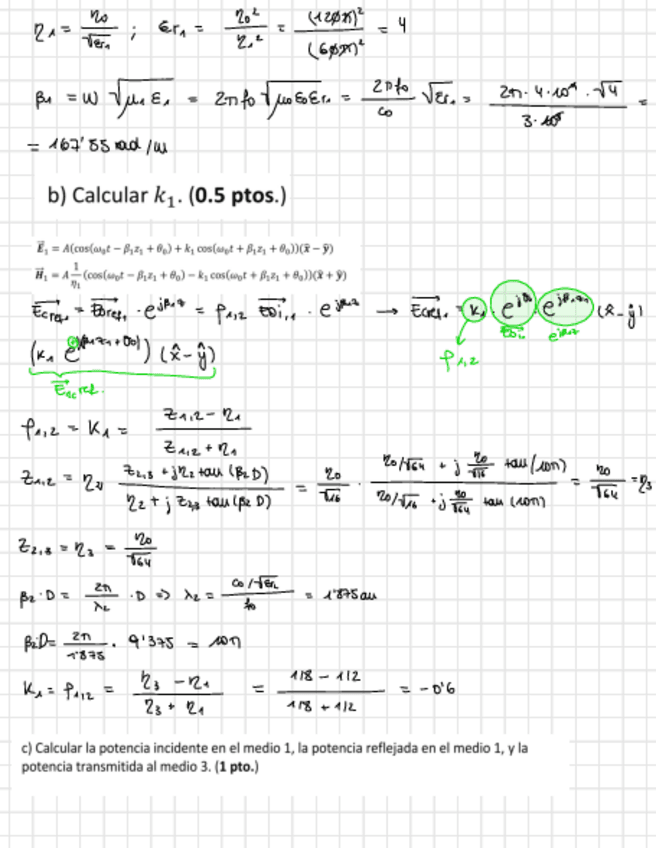 η₁ = η₀/√εr₁ ; εr₁ = η₀²/η₁² = (120π)²/(60π)² = 4
β₁ = ω √μ₁ε₁ = 2πf₀ √μ₀ε₀εr₁ = 2πf₀/c₀ √εr₁ = 2π·4·10⁹·√4 / 3·10⁸ =
= 167'55 rad/m
b) Calcular k₁. (0.5 ptos.)
E⃗₁ = A(cos(ω₀t − β₁z₁ + θ₀) + k₁ cos(ω₀t + β₁z₁ + θ₀))(x̂ − ŷ)
H⃗₁ = A 1/η₁ (cos(ω₀t − β₁z₁ + θ₀) − k₁ cos(ω₀t + β₁z₁ + θ₀))(x̂ + ŷ)
= ρ₁,₂ → k₁ (x̂ − ŷ)
ρ₁,₂
(k₁ e^j(β₁z₁+θ₀)) (x̂ − ŷ)
ρ₁,₂ = K₁ = (Z₁,₂ − η₁)/(Z₁,₂ + η₁)
Z₁,₂ = η₂ (Z₂,₃ + jη₂ tan(β₂D))/(η₂ + j Z₂,₃ tan(β₂D)) = η₀/√16 · (η₀/√64 + j η₀/√16 tan(10π))/(η₀/√16 + j η₀/√64 tan(10π)) = η₀/√64 = η₃
Z₂,₃ = η₃ = η₀/√64
β₂·D = 2π/λ₂ · D ⇒ λ₂ = (c₀/√εr₂)/f₀ = 1'875 cm
β₂D = 2π/1'875 · 9'375 = 10π
K₁ = ρ₁,₂ = (η₃ − η₁)/(η₃ + η₁) = (1/8 − 1/2)/(1/8 + 1/2) = −0'6
c) Calcular la potencia incidente en el medio 1, la potencia reflejada en el medio 1, y la
potencia transmitida al medio 3. (1 pto.)